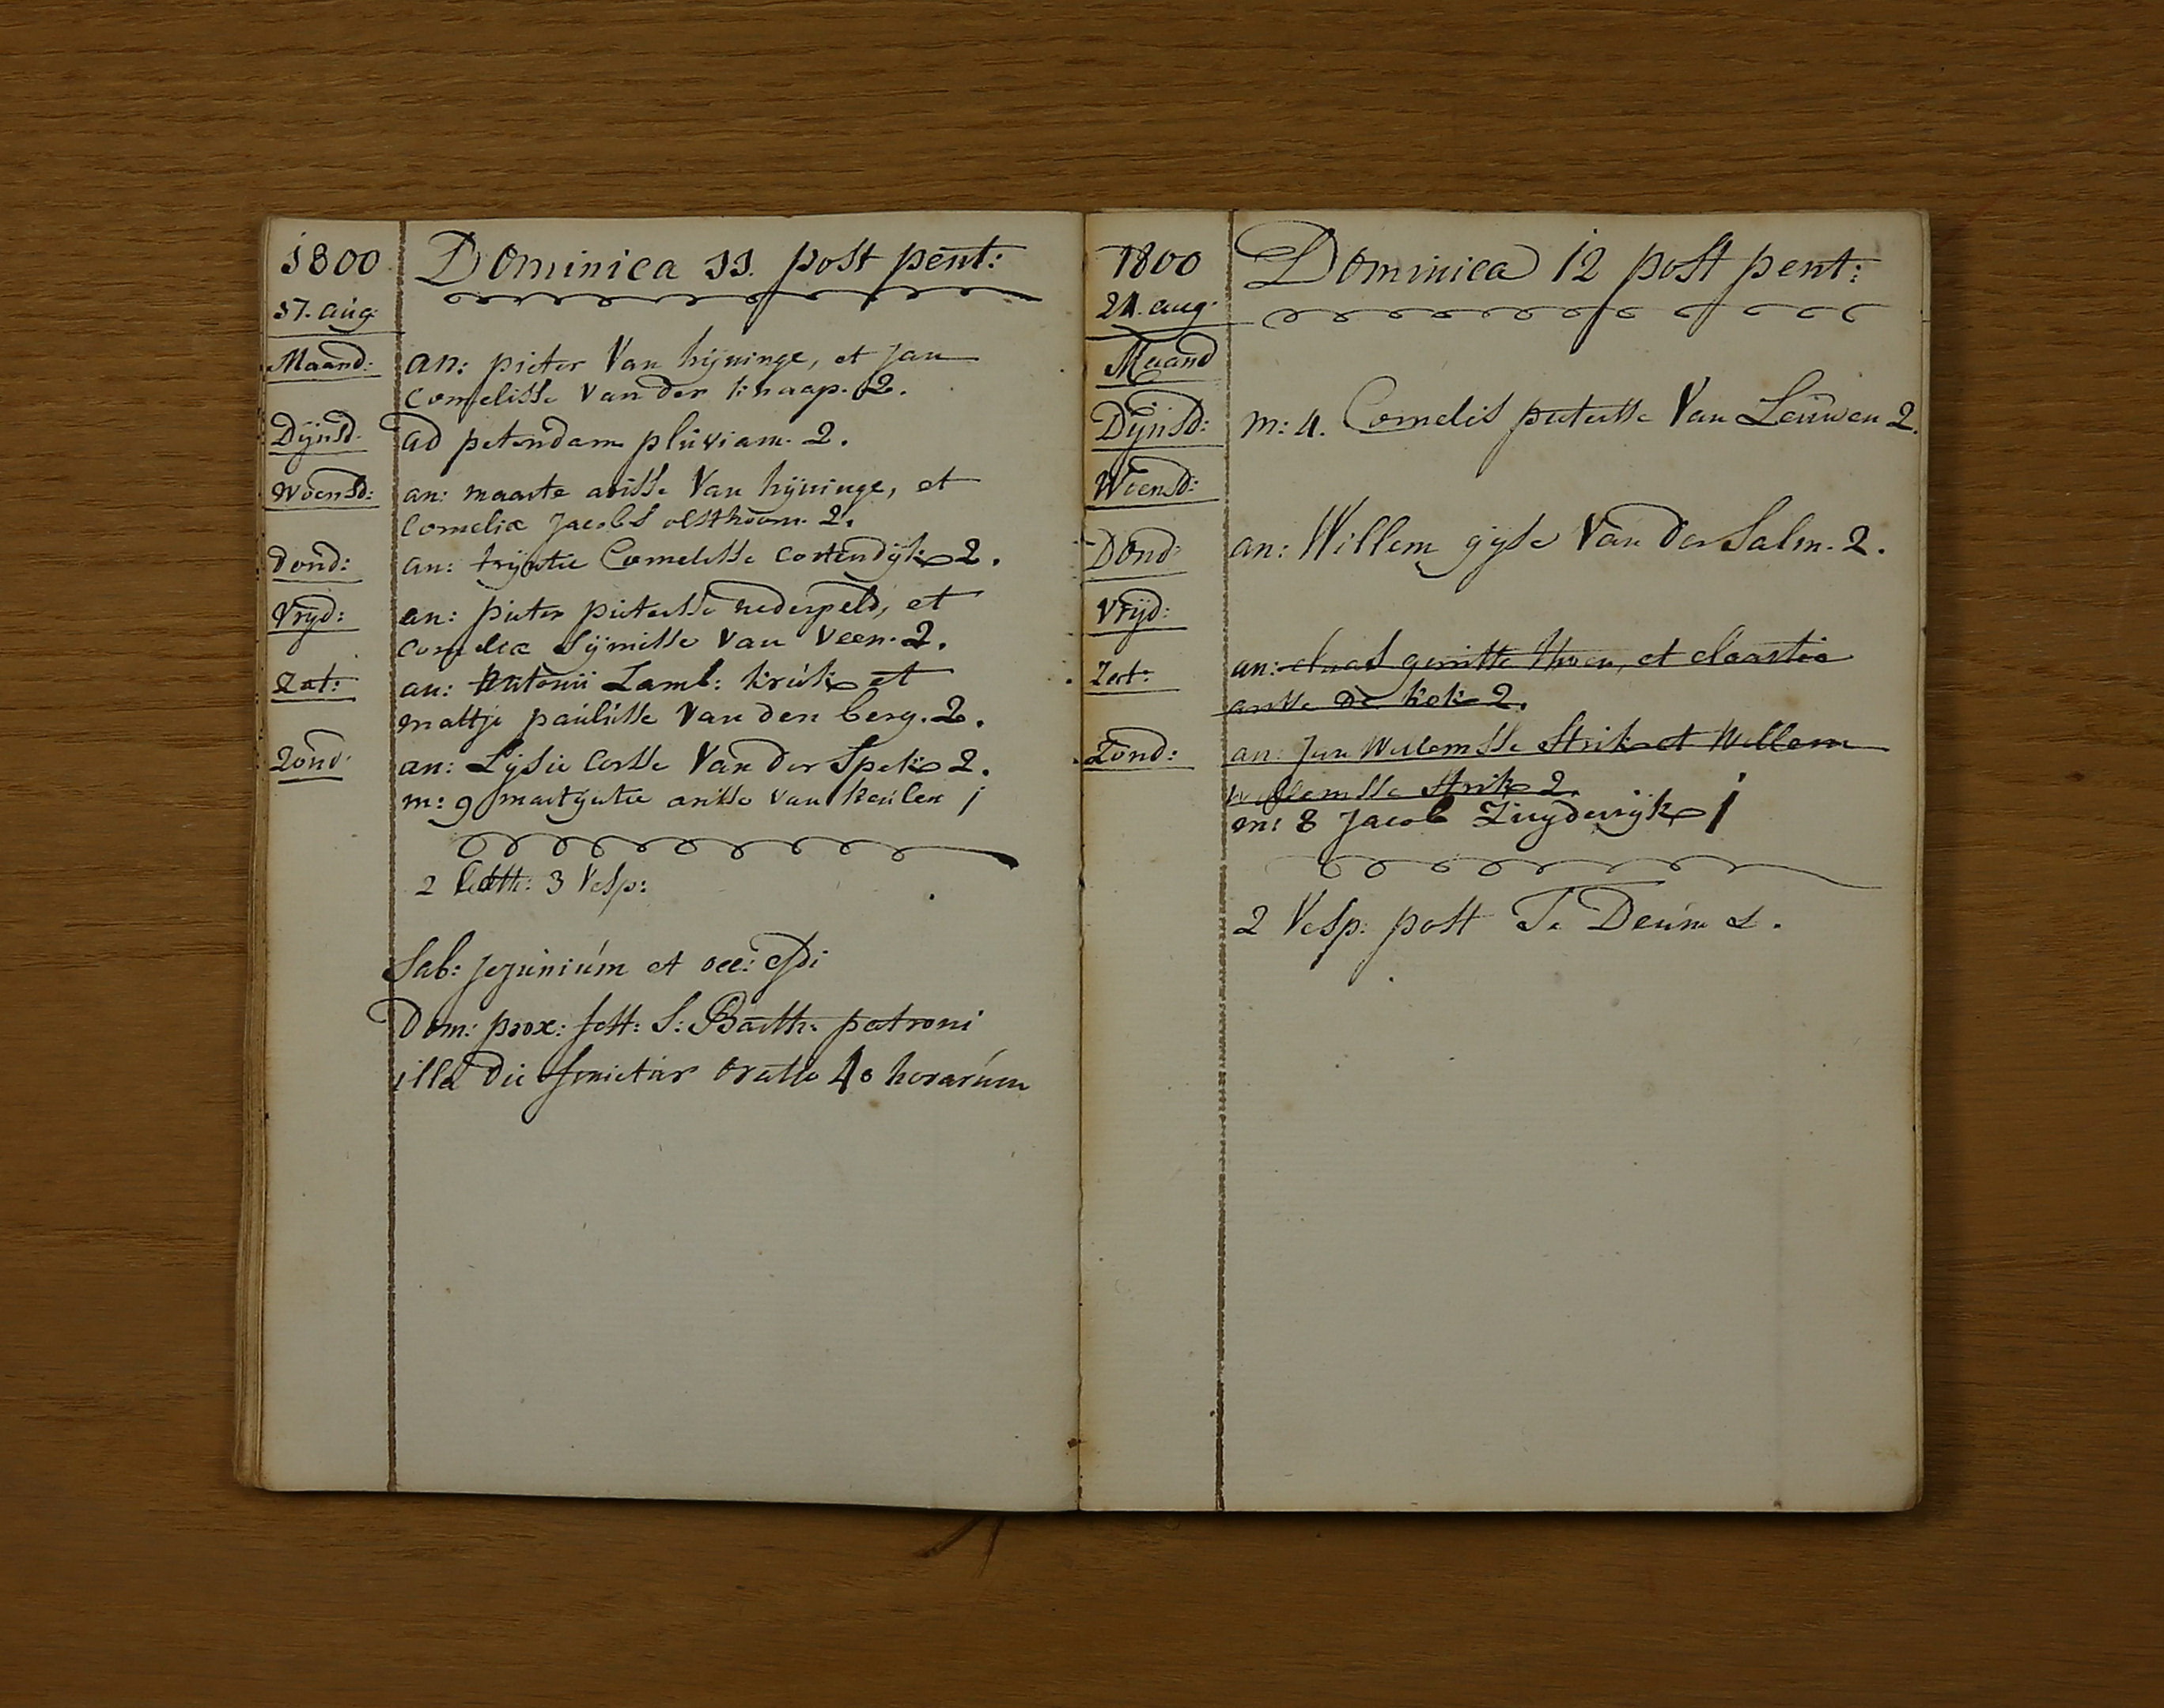 1800 Dominica 11. post pent:
17. aug:
Maand: an: pieter Van hijninge, et Jan
Cornelisse Van der knaap. 2.
Dijnsd: ad petendam pluviam. 2.
Woensd: an: maarte arisse Van hijninge, et
Cornelia Jacobs olsthoorn. 2.
Dond: an: trijntie Cornelisse costendijk 2.
Vrijd: an: pieter pieterse nederpeld, et
Cornelia Sijmisse Van Veen. 2.
Zat: an: Antonii Lamb: kruk et
mattje paulusse Van den berg. 2.
Zond: an: Lijsie Corsse Van der Spek 2.
m: 9 martijntie arisse van keulen j
2 Vesp:
Sab: jejunium et occ:
Dom: prox: fest: S: Barth: patroni
illa die finietur oratio 40 horarum
1800 Dominica 12 post pent:
24. aug:
Maand
Dijnsd: m: 4. Cornelis pieterse Van Leuwen 2.
Woensd:
Dond: an: Willem gijse Van der Salm. 2.
Vrijd:
Zat: an: claas gerritse et claartie
arisse de kok 2.
Zond: an: Jan Willemsse Strik et Willem
Willemsse Strik 2.
m: 8 Jacob Zuyderwijk j
2 Vesp: post Te Deum &.